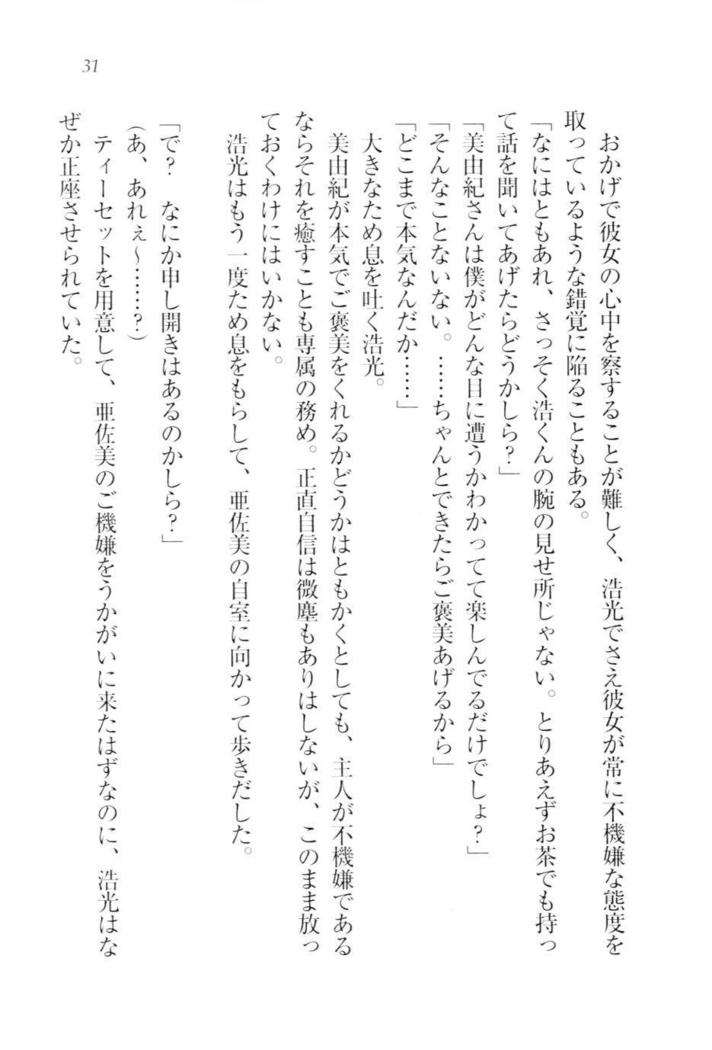 31
　おかげで彼女の心中を察することが難しく、浩光でさえ彼女が常に不機嫌な態度を
取っているような錯覚に陥ることもある。
「なにはともあれ、さっそく浩くんの腕の見せ所じゃない。とりあえずお茶でも持っ
て話を聞いてあげたらどうかしら？」
「美由紀さんは僕がどんな目に遭うかわかってて楽しんでるだけでしょ？」
「そんなことないない。……ちゃんとできたらご褒美あげるから」
「どこまで本気なんだか……」
　大きなため息を吐く浩光。
　美由紀が本気でご褒美をくれるかどうかはともかくとしても、主人が不機嫌である
ならそれを癒すことも専属の務め。正直自信は微塵もありはしないが、このまま放っ
ておくわけにはいかない。
　浩光はもう一度ため息をもらして、亜佐美の自室に向かって歩きだした。
「で？　なにか申し開きはあるのかしら？」
（あ、あれぇ～……？）
　ティーセットを用意して、亜佐美のご機嫌をうかがいに来たはずなのに、浩光はな
ぜか正座させられていた。